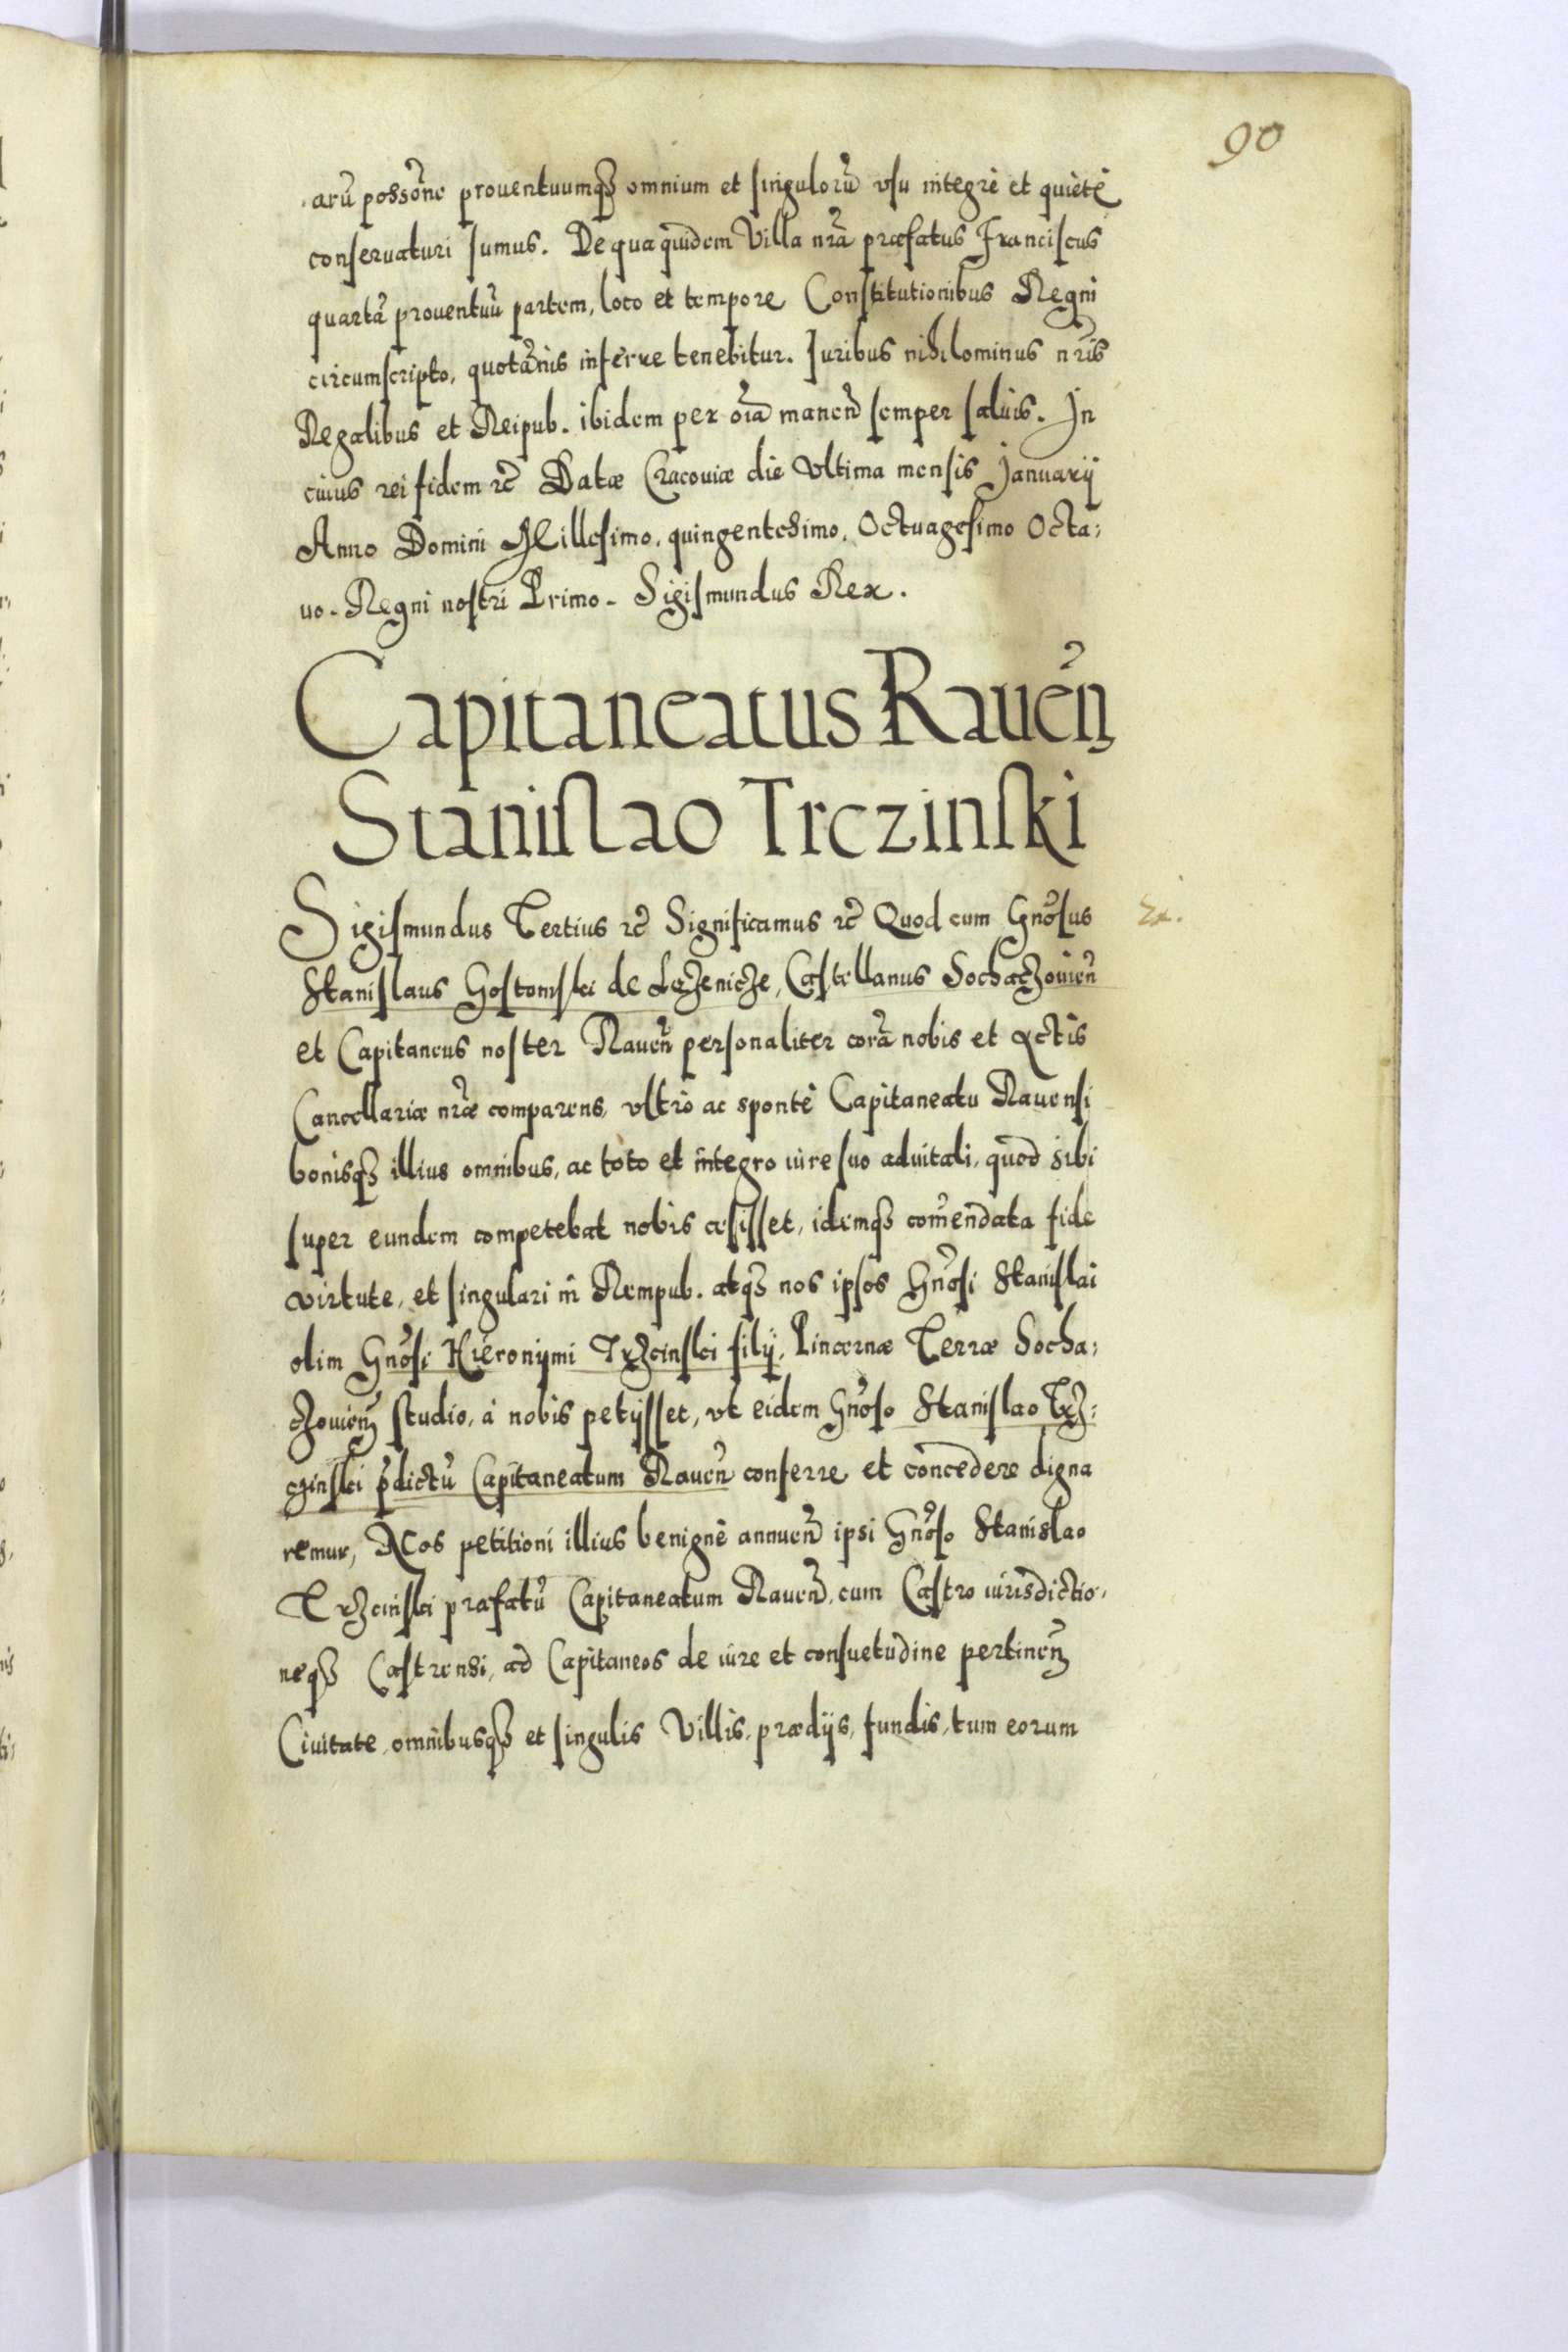 90
arũ possõne prouentuumqȝ omnium et singulorũ vsu integrè et quietè
conseruaturi sumus. De qua quidem Villa nr̃a præfatus Franciscus
quartã prouentuũ partem, loco et tempore Constitutionibus Regni
circumscripto, quotãnis inferre tenebitur. Iuribus nihilominus nr̃is
Regalibus et Reipub. ibidem per oĩa maneñ semper saluis. In
cuius rei fidem ꝛc̃ Datæ Cracouiæ die Vltima mensis Januarij
Anno Domini Millesimo, quingentesimo, Octuagesimo Octa:
uo. Regni nostri Primo. Sigismundus Rex.
Capitaneatus Raueñ
Stanislao Trczinski
Sigismundus Tertius ꝛc̃ Significamus ꝛc̃ Quod cum Gnõsus
Stanislaus Gostomski de Leżenicze, Castellanus Sochaczouieñ
et Capitaneus noster Raueñ personaliter corã nobis et Actis
Cancellariæ nr̃æ comparens, vltrò ac spontè Capitaneatu Rauensi
bonisqȝ illius omnibus, ac toto et integro iure suo aduitali, quod sibi
super eundem competebat nobis cesisset, idemqȝ com̃endata fide
virtute, et singulari in Rempub. atqȝ nos ipsos Gnõsi Stanislai
olim Gnõsi Hieronymi Trzcinski filij, Pincernæ Terræ Socha:
czouieñ studio, à nobis petijsset, vt eidem Gnõso Stanislao Trz:
czinski p̃dictũ Capitaneatum Raueñ conferre et concedere digna
remur, Nos petitioni illius benignè annueñ ipsi Gnõso Stanislao
Trzcinski præfatũ Capitaneatum Raueñ, cum Castro iurisdictio,
neqȝ Castrensi, ad Capitaneos de iure et consuetudine pertineñ
Ciuitate, omnibusqȝ et singulis Villis, prædijs, fundis, tum eorum